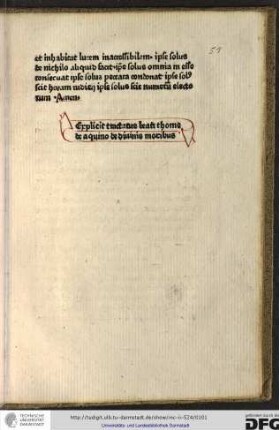 55
et inhabitat lucem inaccessibilem· ipse solus
de nichilo aliquid facit· ip̄e solus omnia in esse
conseruat ipse solus peccata condonat ipse solꝰ
scit horam iudicij ipse solus scit numerū electo
rum ·Amen·
Explicit tractatus beati thome
de aquino de diuinis moribus
TECHNISCHE
UNIVERSITÄT
DARMSTADT
http://tudigit.ulb.tu-darmstadt.de/show/inc-ii-524/0101
Universitäts- und Landesbibliothek Darmstadt
gefördert durch die
DFG